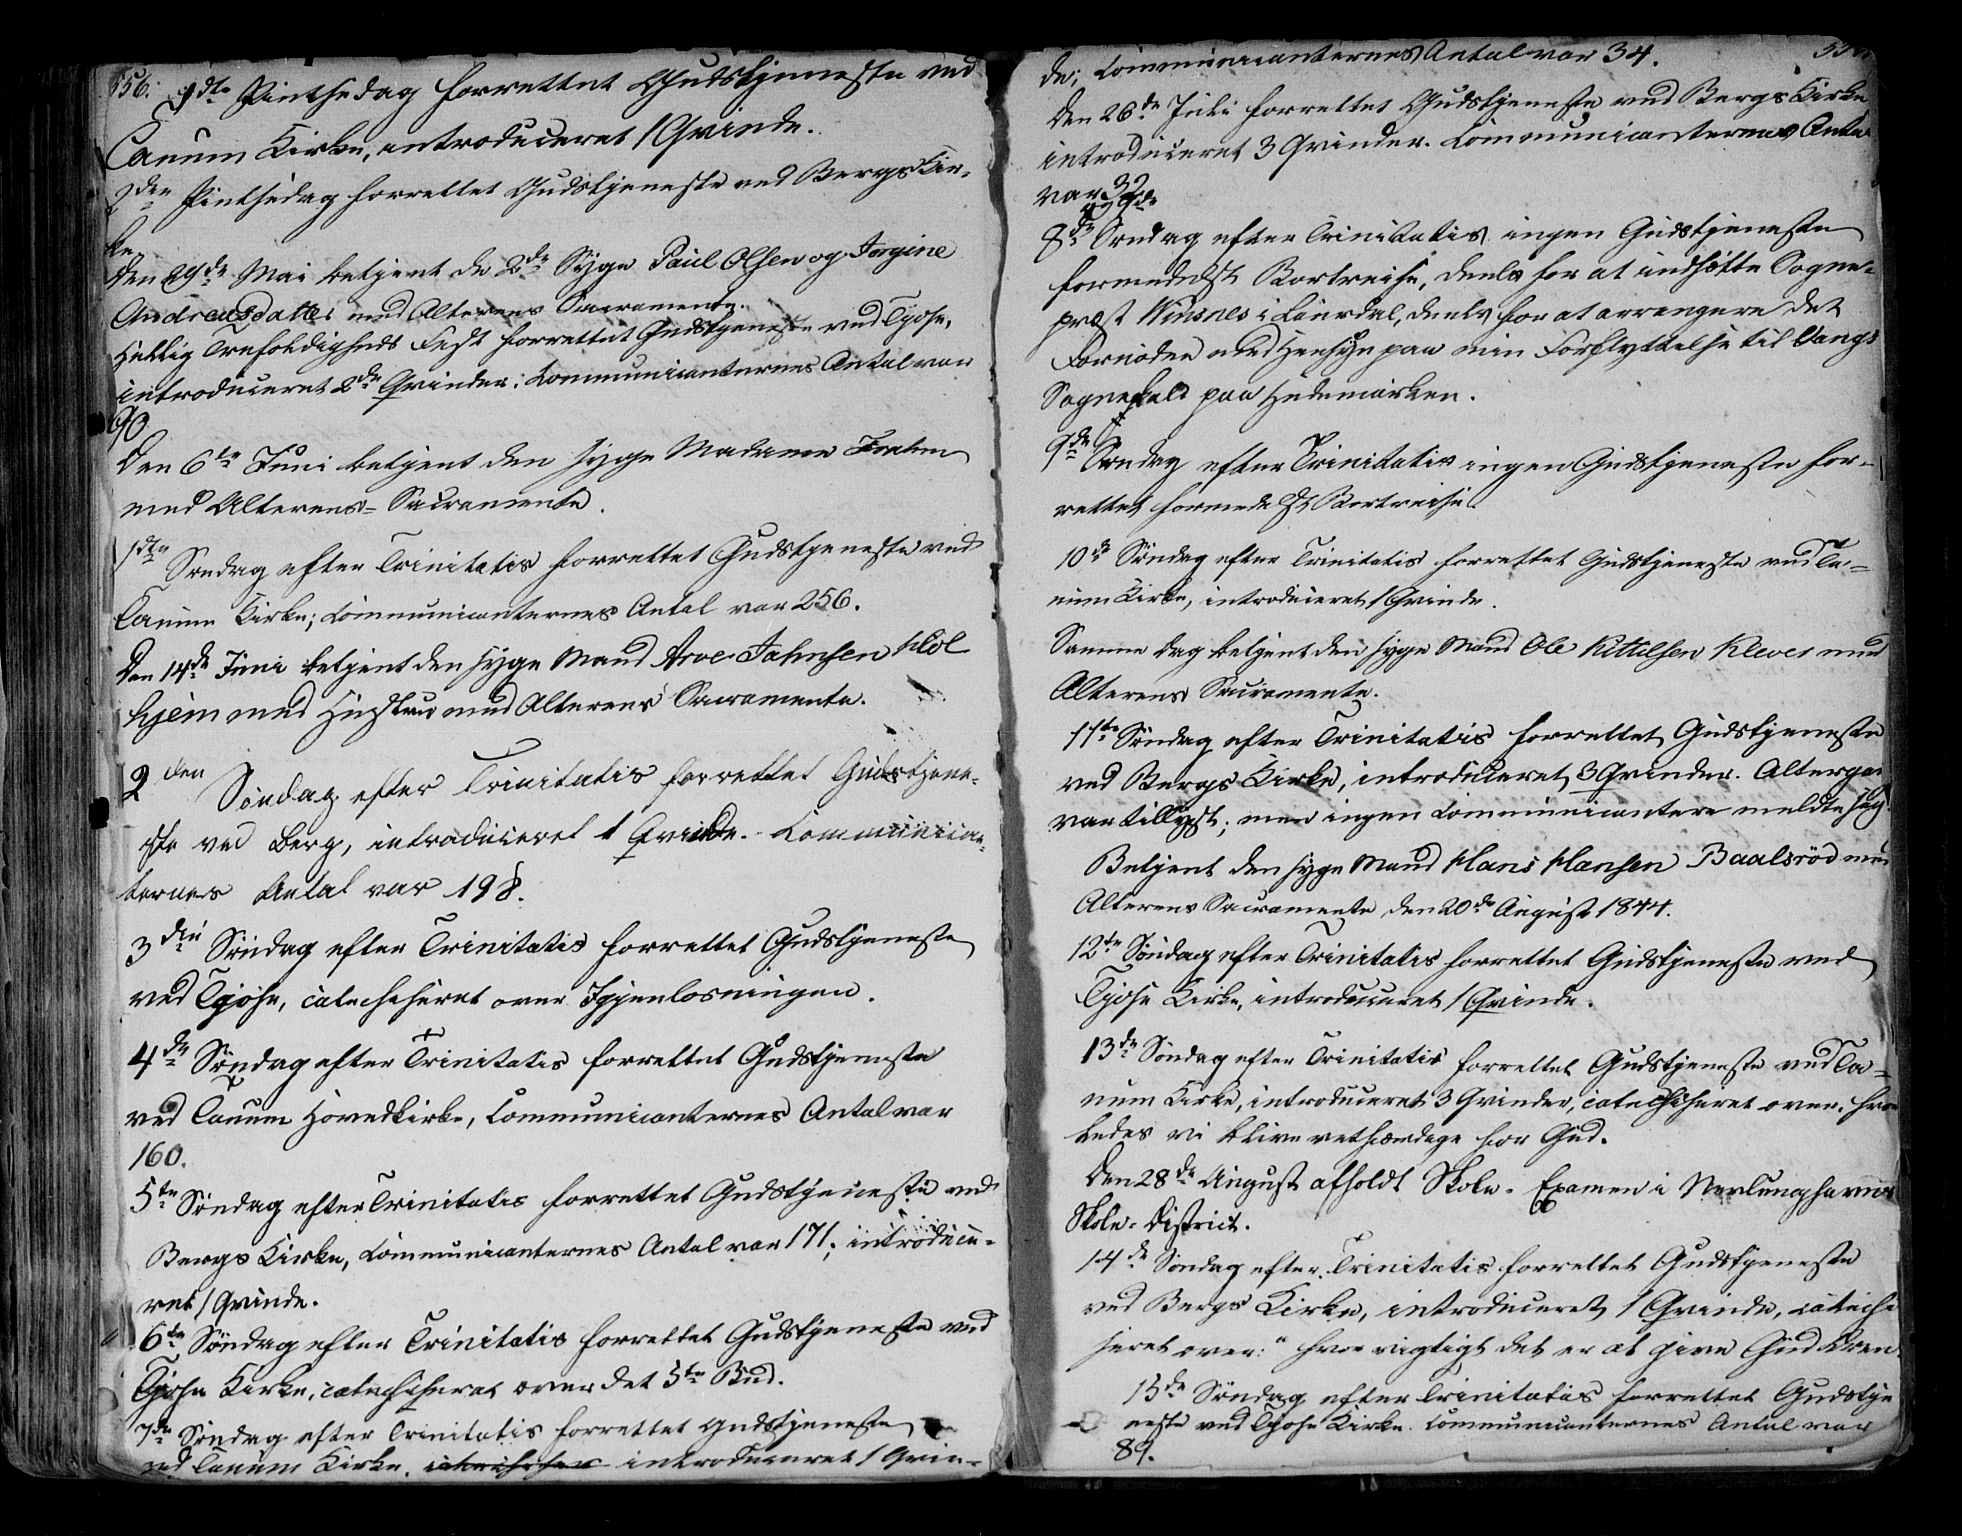 556.
1ste Pintsedag forrettet Gudstjeneste ved
Tanum Kirke, introduceret 1 Qvinde.
2den Pintsedag forrettet Gudstjeneste ved Bergs Kir-
ke
Den 29de Mai betjent de 2de Syge Paul Olsen og Jorgine
Andreasdatter med Alterens Sacramente.
Hellig Trefoldigheds Fest forrettet Gudstjeneste ved Tjose,
introduceret 2de Qvinder; Communicanternes Antal var
90
Den 6te Juni betjent den syge Madame
med Alterens-Sacramente.
1ste Søndag efter Trinitatis forrettet Gudstjeneste ved
Tanum Kirke; Communicanternes Antal var 256.
Den 14de Juni betjent den syge Mand Arve Jahnsen Hol
hjem med Hustru med Alterens Sacramente.
2den Søndag efter Trinitatis forrettet Gudstjene-
ste ved Berg, introduceret 1 Qvinde. Communican-
ternes Antal var 198.
3die Søndag efter Trinitatis forrettet Gudstjeneste
ved Tjose, catechiseret over Igjenløsningen.
4de Søndag efter Trinitatis forrettet Gudstjeneste
ved Tanum Hovedkirke, Communicanternes Antal var
160.
5te Søndag efter Trinitatis forrettet Gudstjeneste ved
Bergs Kirke, Communicanternes Antal var 171; introduce-
ret 1 Qvinde.
6te Søndag efter Trinitatis forrettet Gudstjeneste ved
Tjose Kirke, catechiseret over det 5te Bud.
7de Søndag efter Trinitatis forrettet Gudstjeneste
ved Tanum Kirke. introduceret 1 Qvin-
de; Communicanternes Antal var 34.
Den 26de Juli forrettet Gudstjeneste ved Bergs Kirke
introduceret 3 Qvinder. Communicanternes Antal
var 32
8de Søndag efter Trinitatis ingen Gudstjeneste
formedelst Bortreise, deels for at indsætte Sogne-
præst Winsnes i Laurdal, deels for at arrangere det
Fornødne med Hensyn paa min Forflyttelse til Vangs
Sognekald paa Hedemarken.
9de Søndag efter Trinitatis ingen Gudstjeneste for-
rettet formedelst Bortreise.
10de Søndag efter Trinitatis forrettet Gudstjeneste ved Ta-
num Kirke, introduceret 1 Qvinde.
Samme Dag betjent den syge Mand Ole Kittelsen Klever med
Alterens Sacramente.
11te Søndag efter Trinitatis forrettet Gudstjeneste
ved Bergs Kirke, introduceret 3 Qvinder. Altergan
var tillyst; men ingen Communicantere meldte sig
Betjent den syge Mand Hans Hansen Baalsrød med
Alterens Sacramente den 20de August 1844.
12te Søndag efter Trinitatis forrettet Gudstjeneste ved
Tjose Kirke, introduceret 1 Qvinde.
13de Søndag efter Trinitatis forrettet Gudstjeneste ved Ta-
num Kirke, introduceret 3 Qvinder, catechiseret over: hvor
ledes vi blive retfærdige for Gud.
Den 28de August afholdt Skole-Examen i Nevlunghavns
Skole-District.
14de Søndag efter Trinitatis forrettet Gudstjeneste
ved Bergs Kirke, introduceret 1 Qvinde, cateche
seret over: "hvor vigtigt det er at give Gud Æren.
15de Søndag efter Trinitatis forrettet Gudstje
neste ved Tjose Kirke. Communicanternes Antal var
89.